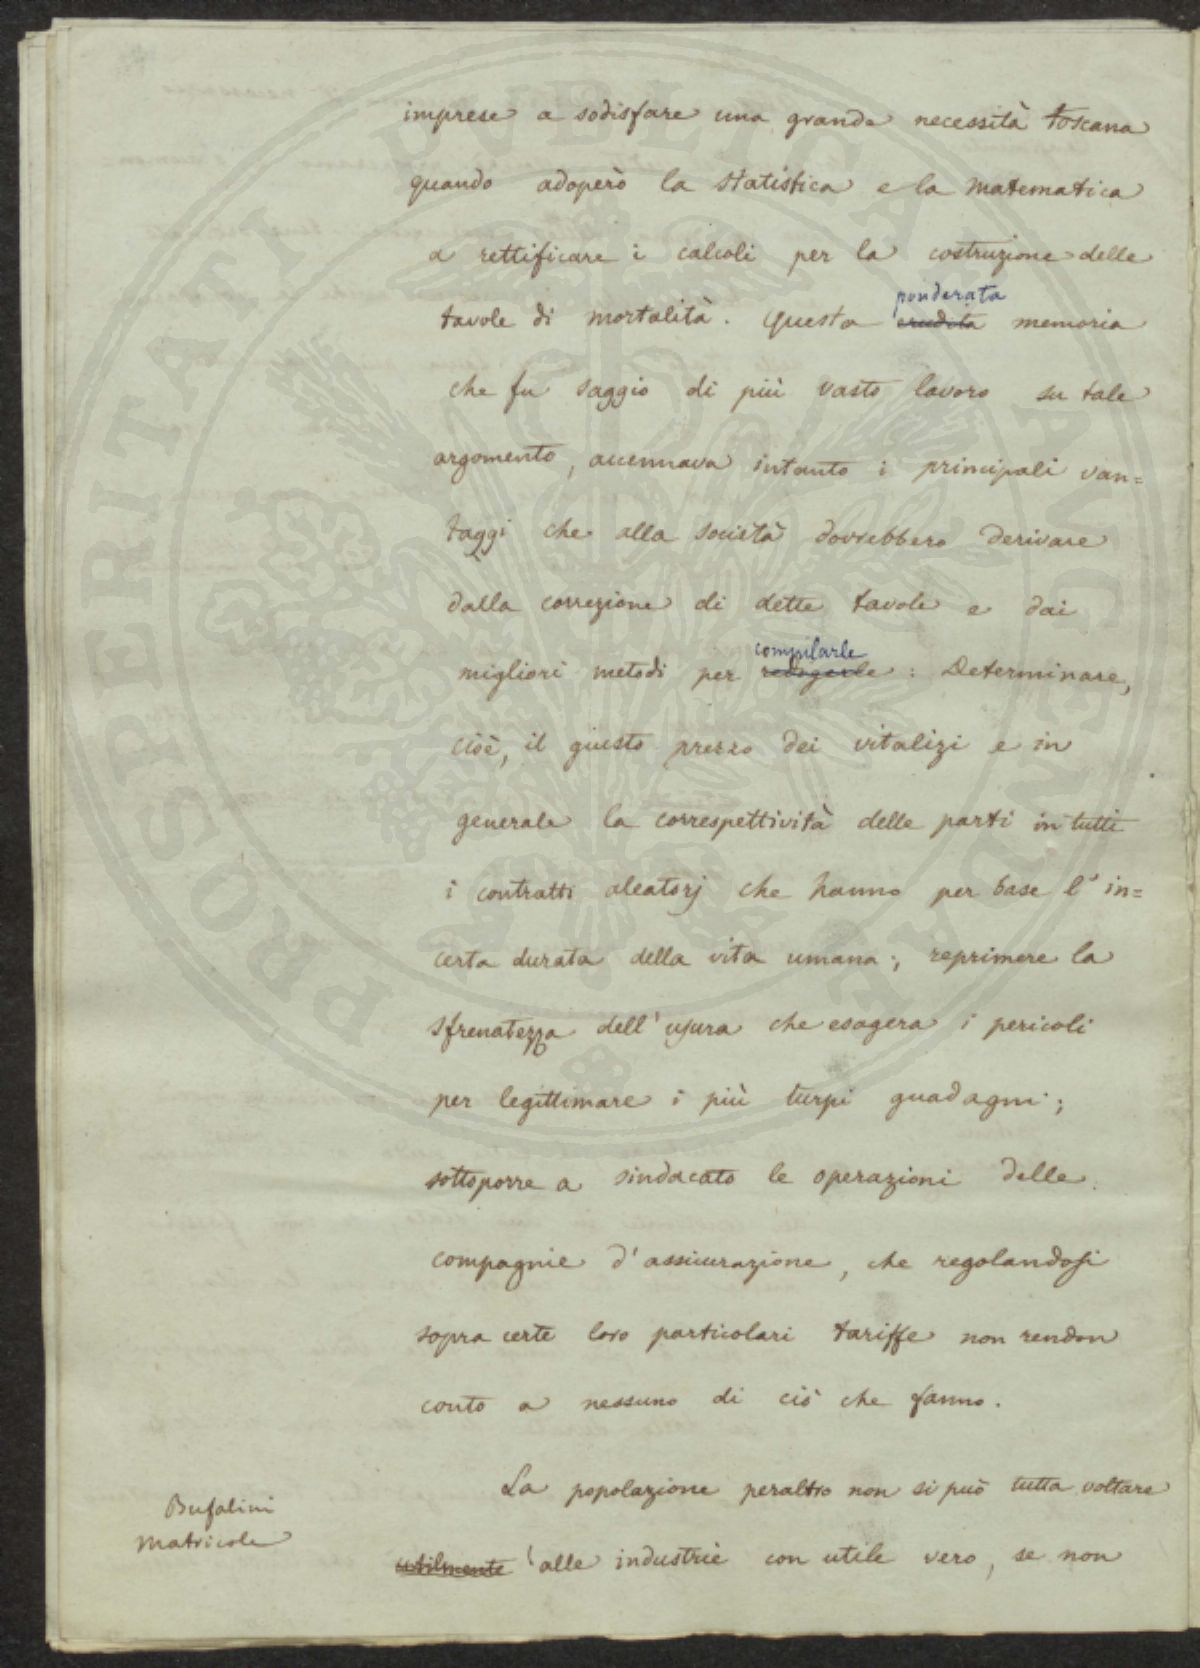 imprese a sodisfare una grande necessità toscana
quando adoperò la statistica e la matematica
a rettificare i calcoli per la costruzione delle
ponderata
tavole di mortalità. Questa erudita memoria
che fu saggio di più vasto lavoro su tale
argomento, accennava intanto i principali van=
taggi che alla società dovrebbero derivare
dalla correzione di dette tavole e dai
compilarle
migliori metodi per redigerle : Determinare,
cioè, il giusto prezzo dei vitalizi e in
generale la correspettività delle parti in tutti
i contratti aleatorj che hanno per base l'in=
certa durata della vita umana; reprimere la
sfrenatezza dell'usura che esagera i pericoli
per legittimare i più turpi guadagni;
sottoporre a sindacato le operazioni delle
compagnie d'assicurazione, che regolandosi
sopra certe loro particolari tariffe non rendon
conto a nessuno di ciò che fanno.
La popolazione peraltro non si può tutta voltare
Bufalini
Matricole
utilmente alle industrie con utile vero, se non
PROSPERITATI PVBLICAE AVGENDAE